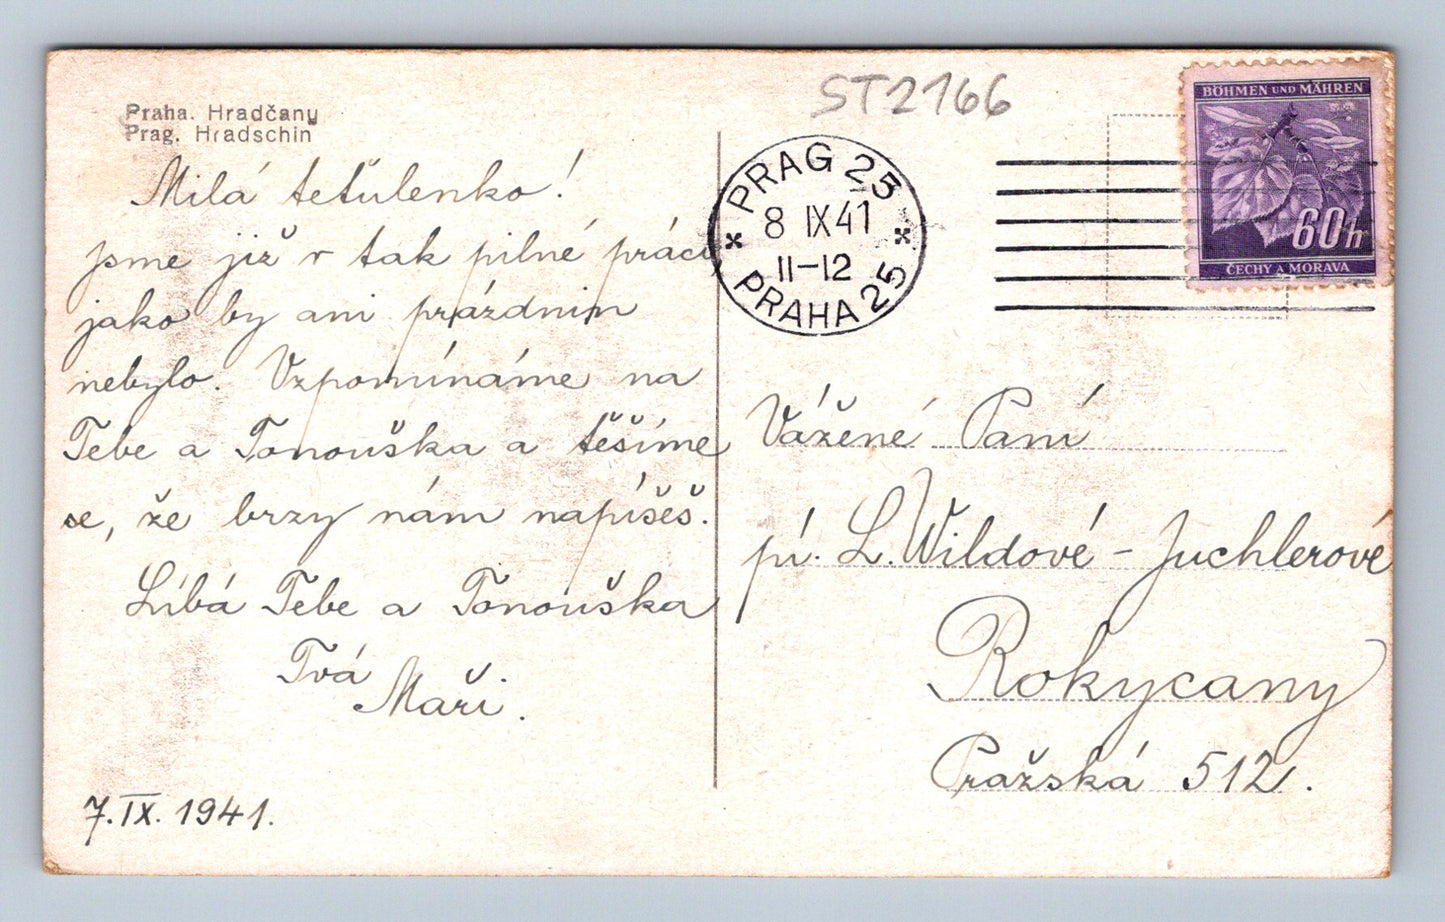 Praha. Hradčany
Prag. Hradschin
ST2166
Milá teťulenko!
jsme již v tak pilné práci
jako by ani prázdnin
nebylo. Vzpomínáme na
Tebe a Tonouška a těšíme
se, že brzy nám napíšeš.
Líbá Tebe a Tonouška
Tvá
Maři.
7.IX.1941.
PRAG 25
8 IX 41
11-12
PRAHA 25
BÖHMEN UND MÄHREN
60h
ČECHY A MORAVA
Vážené Paní
pí. L. Wildové - Juchlerové
Rokycany
Pražská 512.